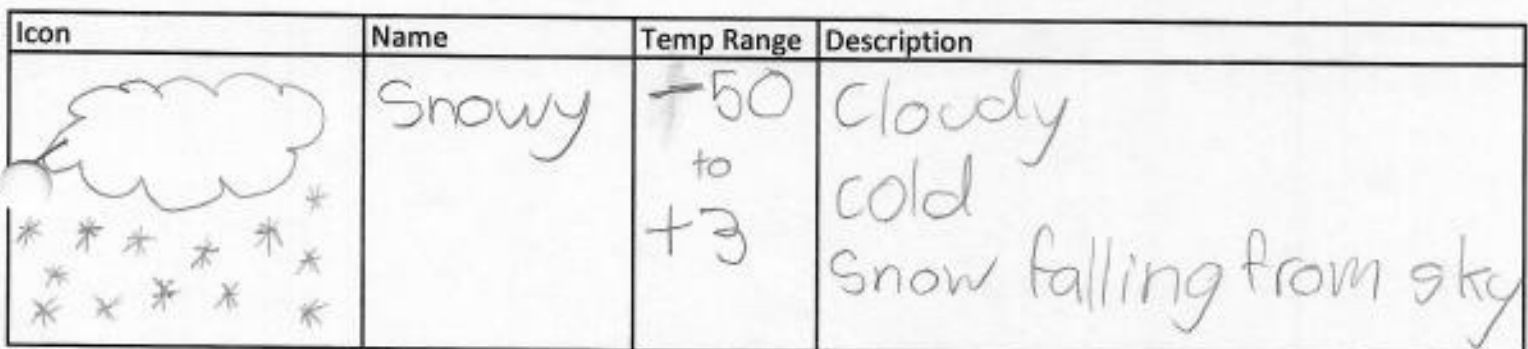 Icon Name Temp Range Description
Snowy -50 Cloudy
to cold
+3 Snow falling from sky